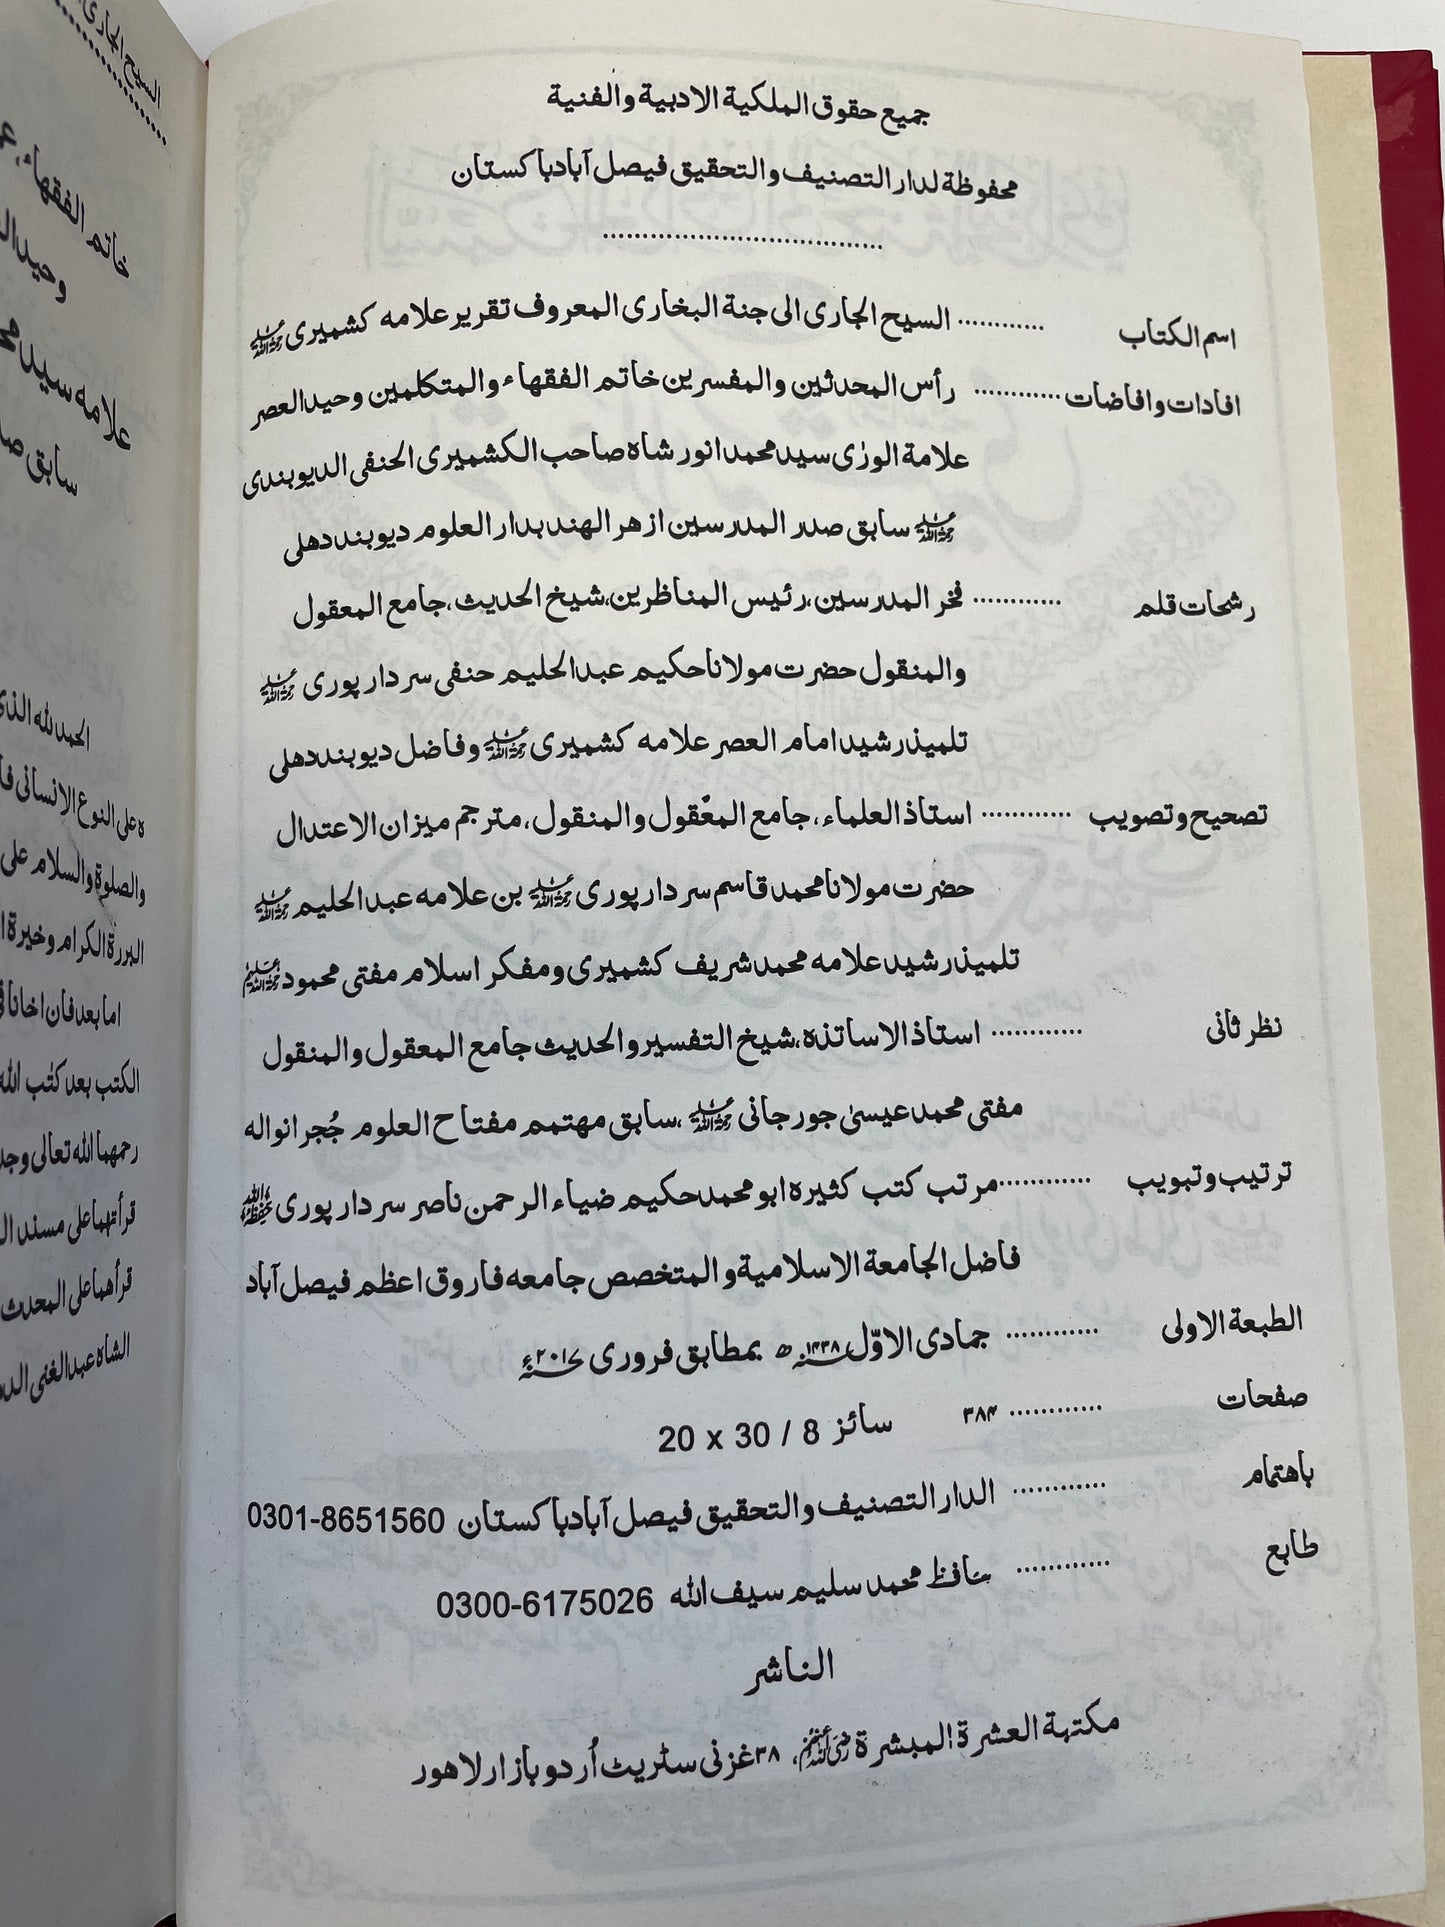 جميع حقوق الملكية الادبية والفنية
محفوظة لدار التصنيف والتحقيق فيصل آباد باكستان
اسم الكتاب ............ السيح الجارى الى جنة البخارى المعروف تقرير علامه كشميرى رحمۃ اللہ علیہ
افادات وافاضات ............ رأس المحدثين والمفسرين خاتم الفقهاء والمتكلمين وحيد العصر
علامة الورٰى سيد محمد انور شاه صاحب الكشميرى الحنفى الديوبندى
رحمۃ اللہ علیہ سابق صدر المدرسين ازهر الهند بدار العلوم ديوبند دهلى
رشحات قلم ............ فخر المدرسين، رئيس المناظرين، شيخ الحديث، جامع المعقول
والمنقول حضرت مولانا حكيم عبد الحليم حنفى سردارپورى رحمۃ اللہ علیہ
تلميذ رشيد امام العصر علامه كشميرى رحمۃ اللہ علیہ وفاضل ديوبند دهلى
تصحيح وتصويب ............ استاذ العلماء، جامع المعقول والمنقول، مترجم ميزان الاعتدال
حضرت مولانا محمد قاسم سردارپورى رحمۃ اللہ علیہ بن علامه عبد الحليم رحمۃ اللہ علیہ
تلميذ رشيد علامه محمد شريف كشميرى ومفكر اسلام مفتى محمود
نظر ثانى ............ استاذ الاساتذه، شيخ التفسير والحديث جامع المعقول والمنقول
مفتى محمد عيسىٰ جورجانى رحمۃ اللہ علیہ، سابق مهتمم مفتاح العلوم جُجرانواله
ترتيب وتبويب ............ مرتب كتب كثيره ابو محمد حكيم ضياء الرحمن ناصر سردارپورى حفظہ اللہ
فاضل الجامعة الاسلامية والمتخصص جامعه فاروق اعظم فيصل آباد
الطبعة الاولى ............ جمادى الاوّل سنہ ۱۴۳۸ھ بمطابق فرورى سنہ ۲۰۱۷ء
صفحات ............ ۳۸۴ سائز 20 x 30 / 8
باهتمام ............ الدار التصنيف والتحقيق فيصل آباد باكستان 0301-8651560
طابع ............ حافظ محمد سليم سيف الله 0300-6175026
الناشر
مكتبة العشرة المبشرة رضی اللہ عنہم، ۳۸ غزنى سٹريٹ اُردو بازار لاهور
السيح الجارى
خاتم الفقهاء
علامه سيد
الحمد لله الذى
ه على النوع الانسانى
والصلوٰة والسلام على
البررة الكرام وخيرة
اما بعد فان اخانا
الكتب بعد كتٰب الله
رحمهما الله تعالى
قرأتهما على مسند
قرأهما على المحدث
الشاه عبد الغنى